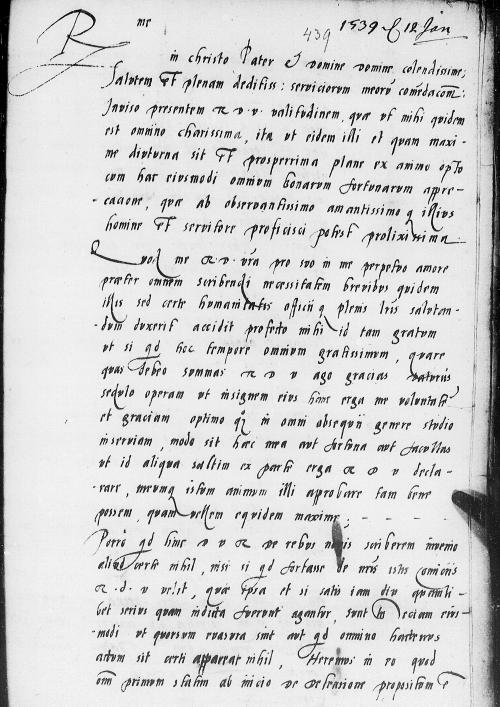 439 1539 12 Jan
R me
in christo Pater & domine domine colendissime,
Salutem Et plenam deditiss: serviciorum meorum comedacom:
Inviso presentem R. D. V. valitudinem, quæ ut mihi quidem
est omnino charissima, ita ut eidem illi et quam maxi-
me diuturna sit Et prosperrima plane ex animo opto
cum hac eiusmodi omnium bonarum fortunarum appre-
cacione, quæ ab observantissimo amantissimo q illius
homine Et servitore proficisci potest prolixissima.
Quod me R. D. vra pro suo in me perpetuo amore
præter omnem scribendi necessitatem brevibus quidem
illis sed certe humanitatis officii q plenis lris salutan-
dum duxerit accidit profecto mihi id tam gratum
ut si qd hoc tempore omnium gratissimum, quare
quas debeo summas R D V ago gracias
sedulo operam ut insignem eius hinc erga me voluntate
et graciam optimo in omni obsequii genere studio
inserviam, modo sit hæc mea aut fortuna aut facultas
ut id aliqua saltim ex parte erga R D V decla-
rare, meumq istum animum illi approbare tam bene
possem, quam vellem equidem maxime;
Porro qd hinc D V R de rebus novis scriberem invenio
aliud certe nihil, nisi si qd fortasse de nris istis Comiciis
R. d. v velit, quæ ipsa et si satis iam diu quamli-
bet serius quam indicta fuerunt agantur, sunt eius-
modi ut quorsum evasura sint aut qd omnino hactenus
actum sit certi appareat nihil, Heremus in eo quod
om primum statim ab inicio de defensione propositum e